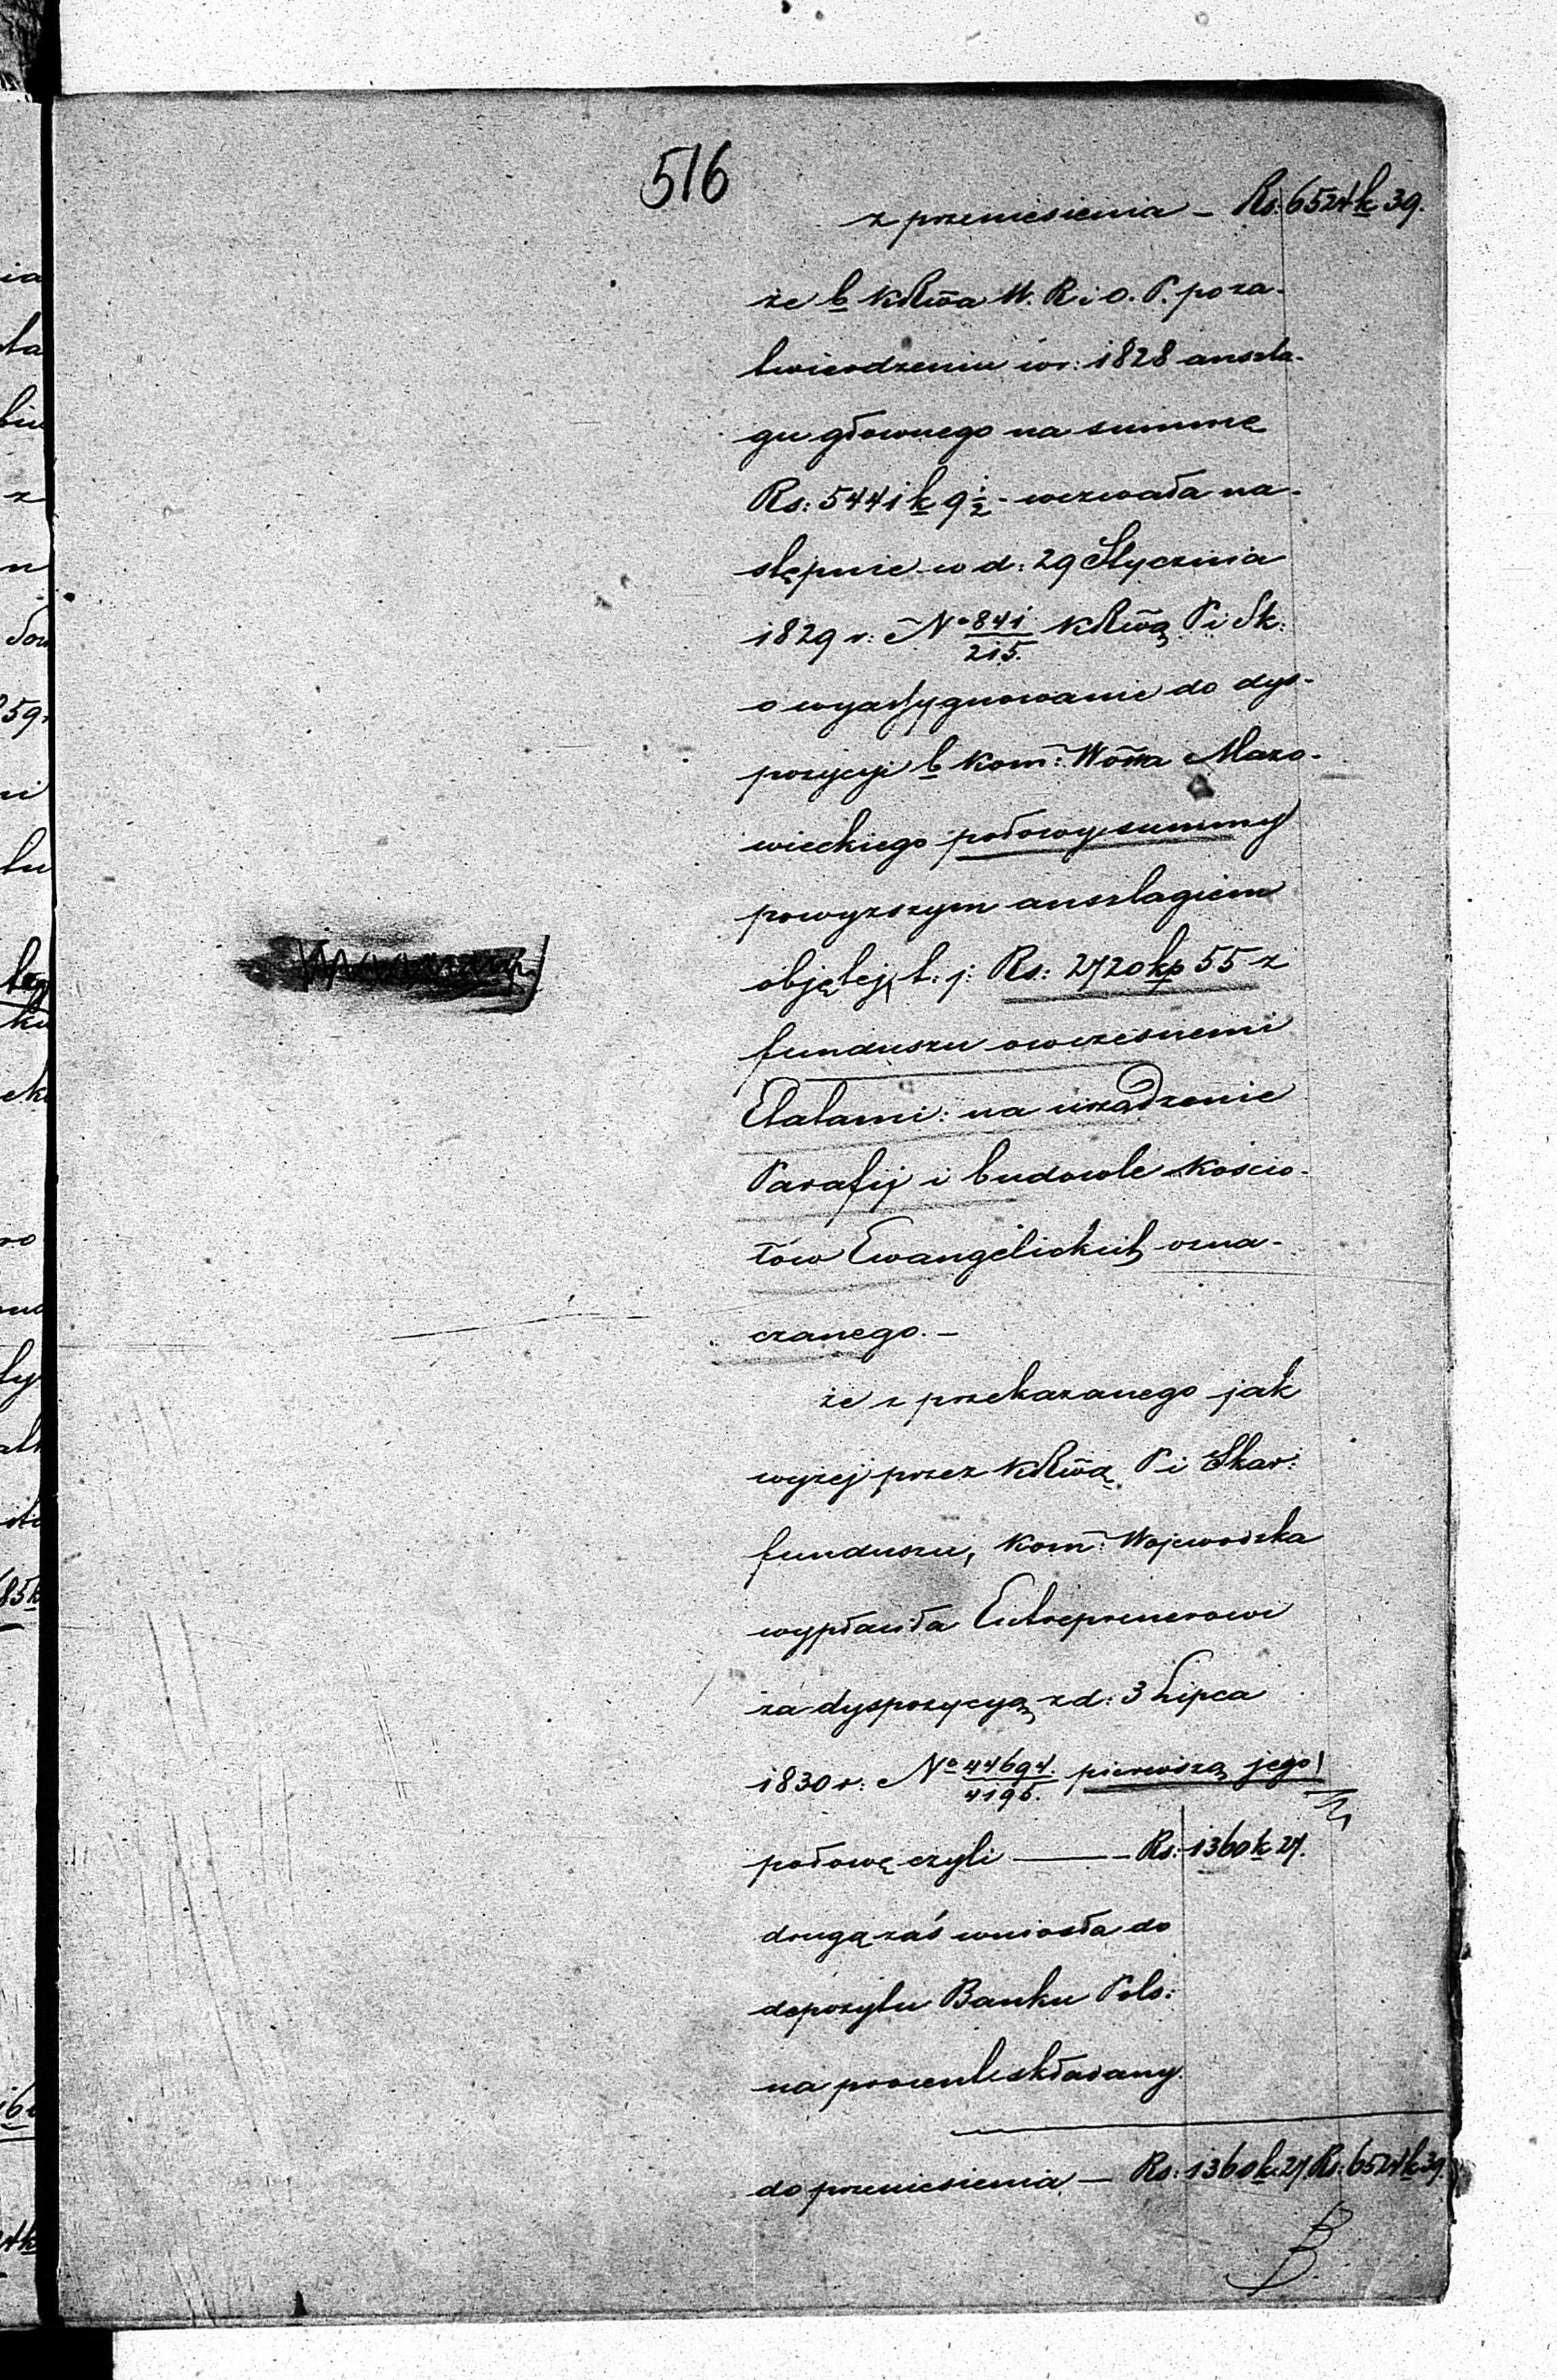 516
z przeniesienia — Rs: 6524 k 39.
że b KRwa W. R. i O. P. po za-
twierdzeniu w r: 1828 anszla-
gu głownego na summę
Rs: 5441 k 9 1/2 - wezwała na-
stępnie w d: 29 Stycznia
1829 r: No 841/215. KRwą P i Sk:
o wyassygnowanie do dys-
pozycyi b Kom: Wówa Mazo-
wieckiego połowy summy
powyższym anszlagiem
objętej, t. j: Rs: 2720 kp 55 z
funduszu owczesnemi
Etatami: na urządzenie
Parafij i budowle Kościo-
łów Ewangelickich ozna-
czanego. —
że z przekazanego jak
wyżej przez KRwą P i Skar:
funduszu, Kom: Wojewodzka
wypłaciła Entreprenerowi
za dyspozycyą z d: 3 Lipca
1830 r: No 44694./4195. pierwszą jego
połowę czyli ——— Rs: 1360 k 27.
drugą zaś wniosła do
depozytu Banku Pols:
na procent składany.
do przeniesienia — Rs: 1360 k. 27 Rs: 6524 k 39.